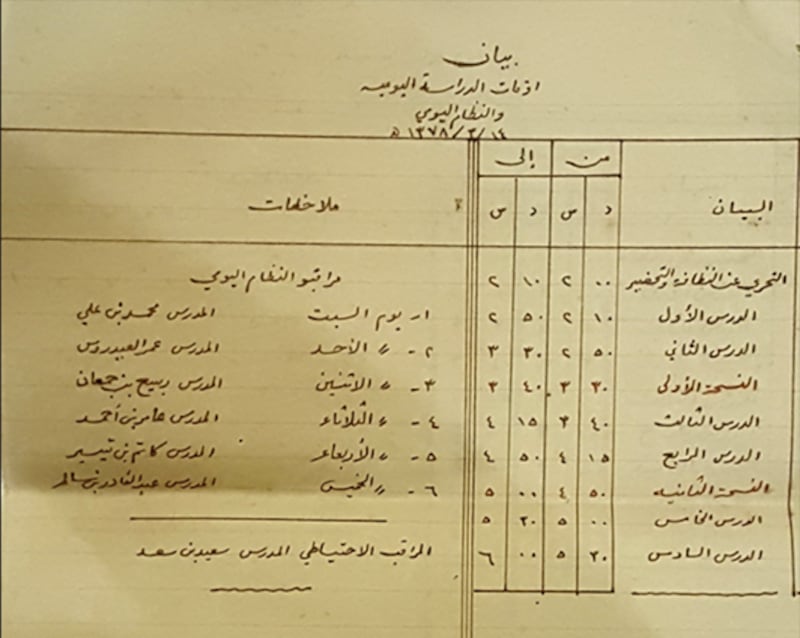 بيان
اوقات الدراسة اليوميه
والنظام اليومي
١٤/٣/١٣٧٨ هـ
البيان من إلى ملاحظات
د س د س
التحري عن النظافة والتحضير ٠٠ ٢ ١٠ ٢ مراقبو النظام اليومي
الدرس الأول ١٠ ٢ ٥٠ ٢ ١- يوم السبت المدرس محمد بن علي
الدرس الثاني ٥٠ ٢ ٣٠ ٣ ٢- " الأحد المدرس عمر العيدروس
الفسحة الأولى ٣٠ ٣ ٤٠ ٣ ٣- " الاثنين المدرس ربيع بن جمعان
الدرس الثالث ٤٠ ٣ ١٥ ٤ ٤- " الثلاثاء المدرس عامر بن أحمد
الدرس الرابع ١٥ ٤ ٥٠ ٤ ٥- " الأربعاء المدرس بن تيسير
الفسحة الثانيه ٥٠ ٤ ٠٠ ٥ ٦- " الخميس المدرس عبدالقادر بن سالم
الدرس الخامس ٠٠ ٥ ٣٠ ٥
الدرس السادس ٣٠ ٥ ٠٠ ٦ المراقب الاحتياطي المدرس سعيد بن سعد